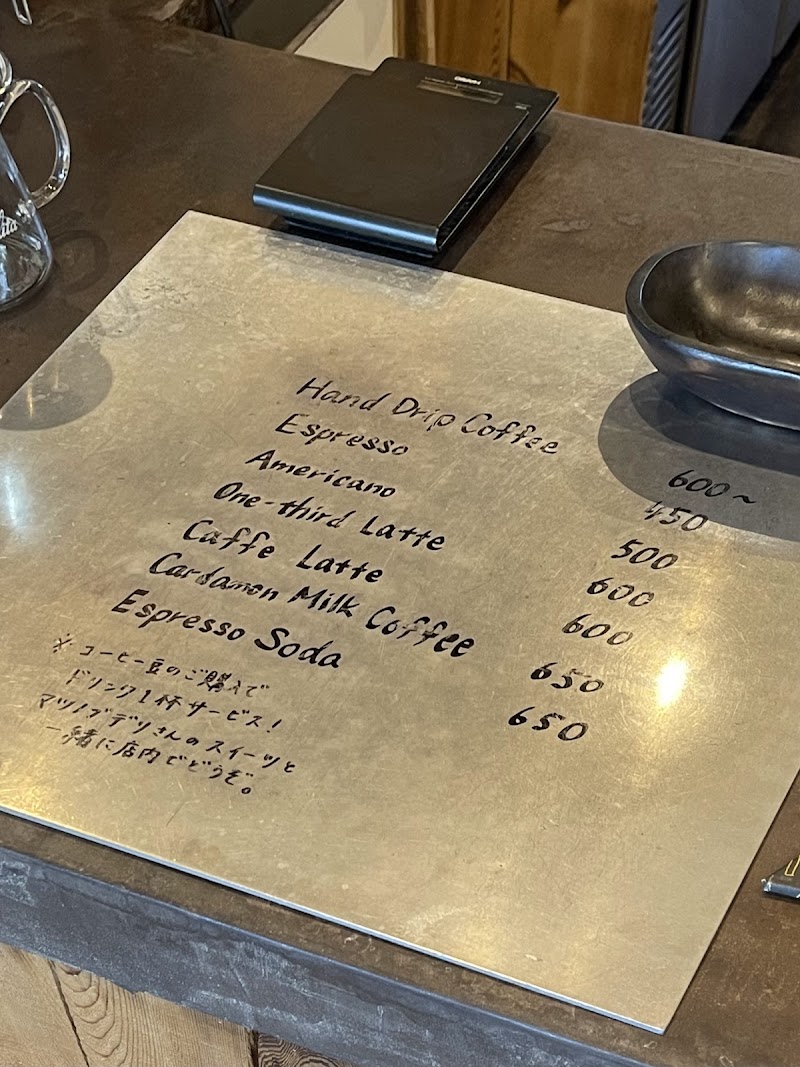 HARIO
lita
Hand Drip Coffee 600~
Espresso 450
Americano 500
One-third Latte 600
Caffe Latte 600
Cardamon Milk Coffee 650
Espresso Soda 650
※コーヒー豆のご購入で
ドリンク1杯サービス!
マツノブデリさんのスイーツと
一緒に店内でどうぞ。